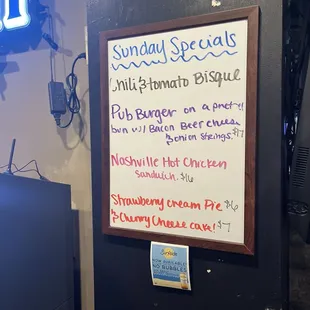 Sunday Specials
Chili & tomato Bisque
Pub Burger on a pretzl
bun w/ Bacon Beer cheese
& onion strings. $17
Nashville Hot Chicken
Sandwich. $16
Strawberry cream Pie $6
& Cherry Cheese cake! $7
NO BUBBLES